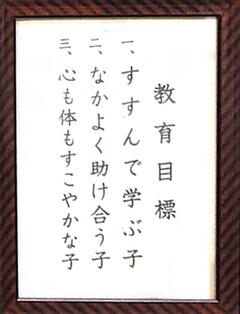 教育目標
一、すすんで学ぶ子
二、なかよく助け合う子
三、心も体もすこやかな子